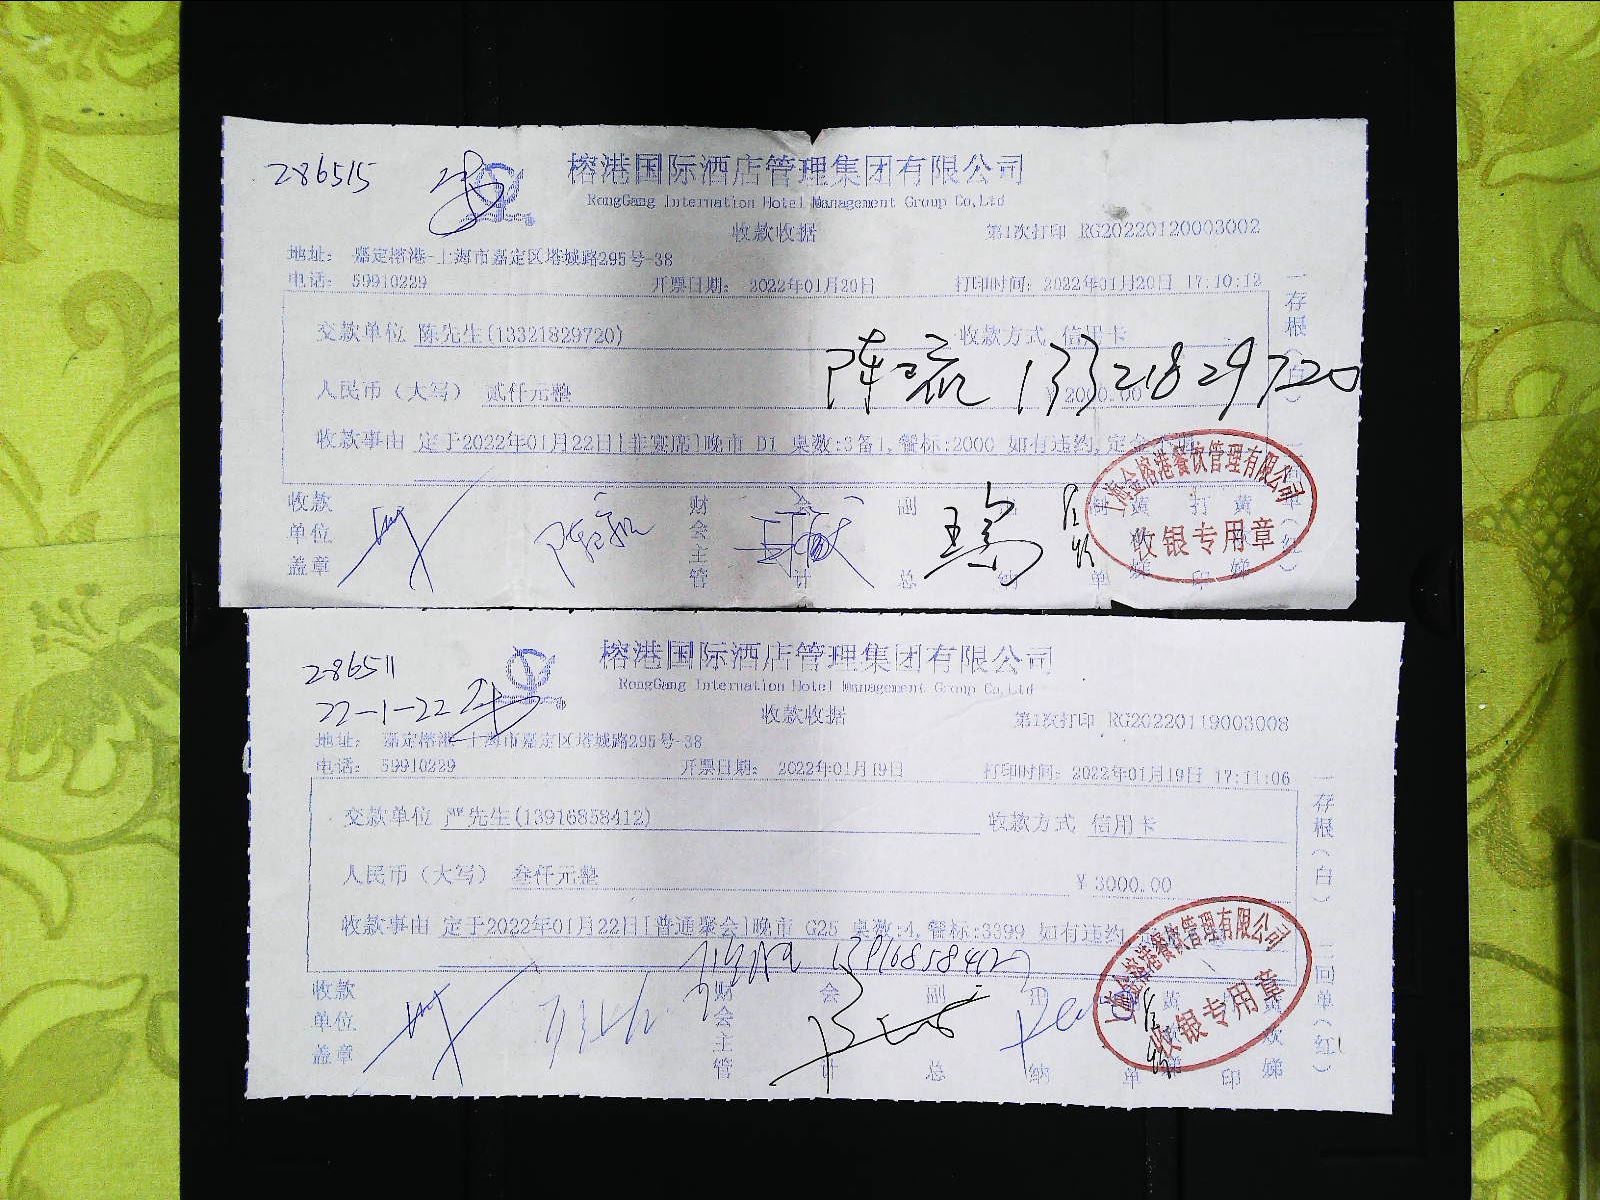 286515
榕港国际酒店管理集团有限公司
RongGang Internation Hotel Management Group Co,Ltd
收款收据
第1次打印 RG20220120003002
地址: 嘉定榕港-上海市嘉定区塔城路295号-38
电话: 59910229 开票日期: 2022年01月20日 打印时间: 2022年01月20日 17:10:12
交款单位 陈先生(13321829720) 收款方式 信用卡
13321829720
人民币(大写) 贰仟元整 ¥2000.00
收款事由 定于2022年01月22日[非宴席]晚市 D1 桌数:3备1,餐标:2000 如有违约,定金不退
收款单位盖章 财会主管 会计 副总 出纳 制单 黄欢娣 打印 黄欢娣
一存根(白) 二回单(红)
上海金榕港餐饮管理有限公司
收银专用章
286511
22-1-22
榕港国际酒店管理集团有限公司
RongGang Internation Hotel Management Group Co,Ltd
收款收据
第1次打印 RG20220119003008
地址: 嘉定榕港-上海市嘉定区塔城路295号-38
电话: 59910229 开票日期: 2022年01月19日 打印时间: 2022年01月19日 17:11:06
交款单位 严先生(13916858412) 收款方式 信用卡
人民币(大写) 叁仟元整 ¥3000.00
收款事由 定于2022年01月22日[普通聚会]晚市 G25 桌数:4,餐标:3399 如有违约
13916858412
收款单位盖章 财会主管 会计 副总 出纳 制单 黄欢娣 打印 黄欢娣
一存根(白) 二回单(红)
上海金榕港餐饮管理有限公司
收银专用章